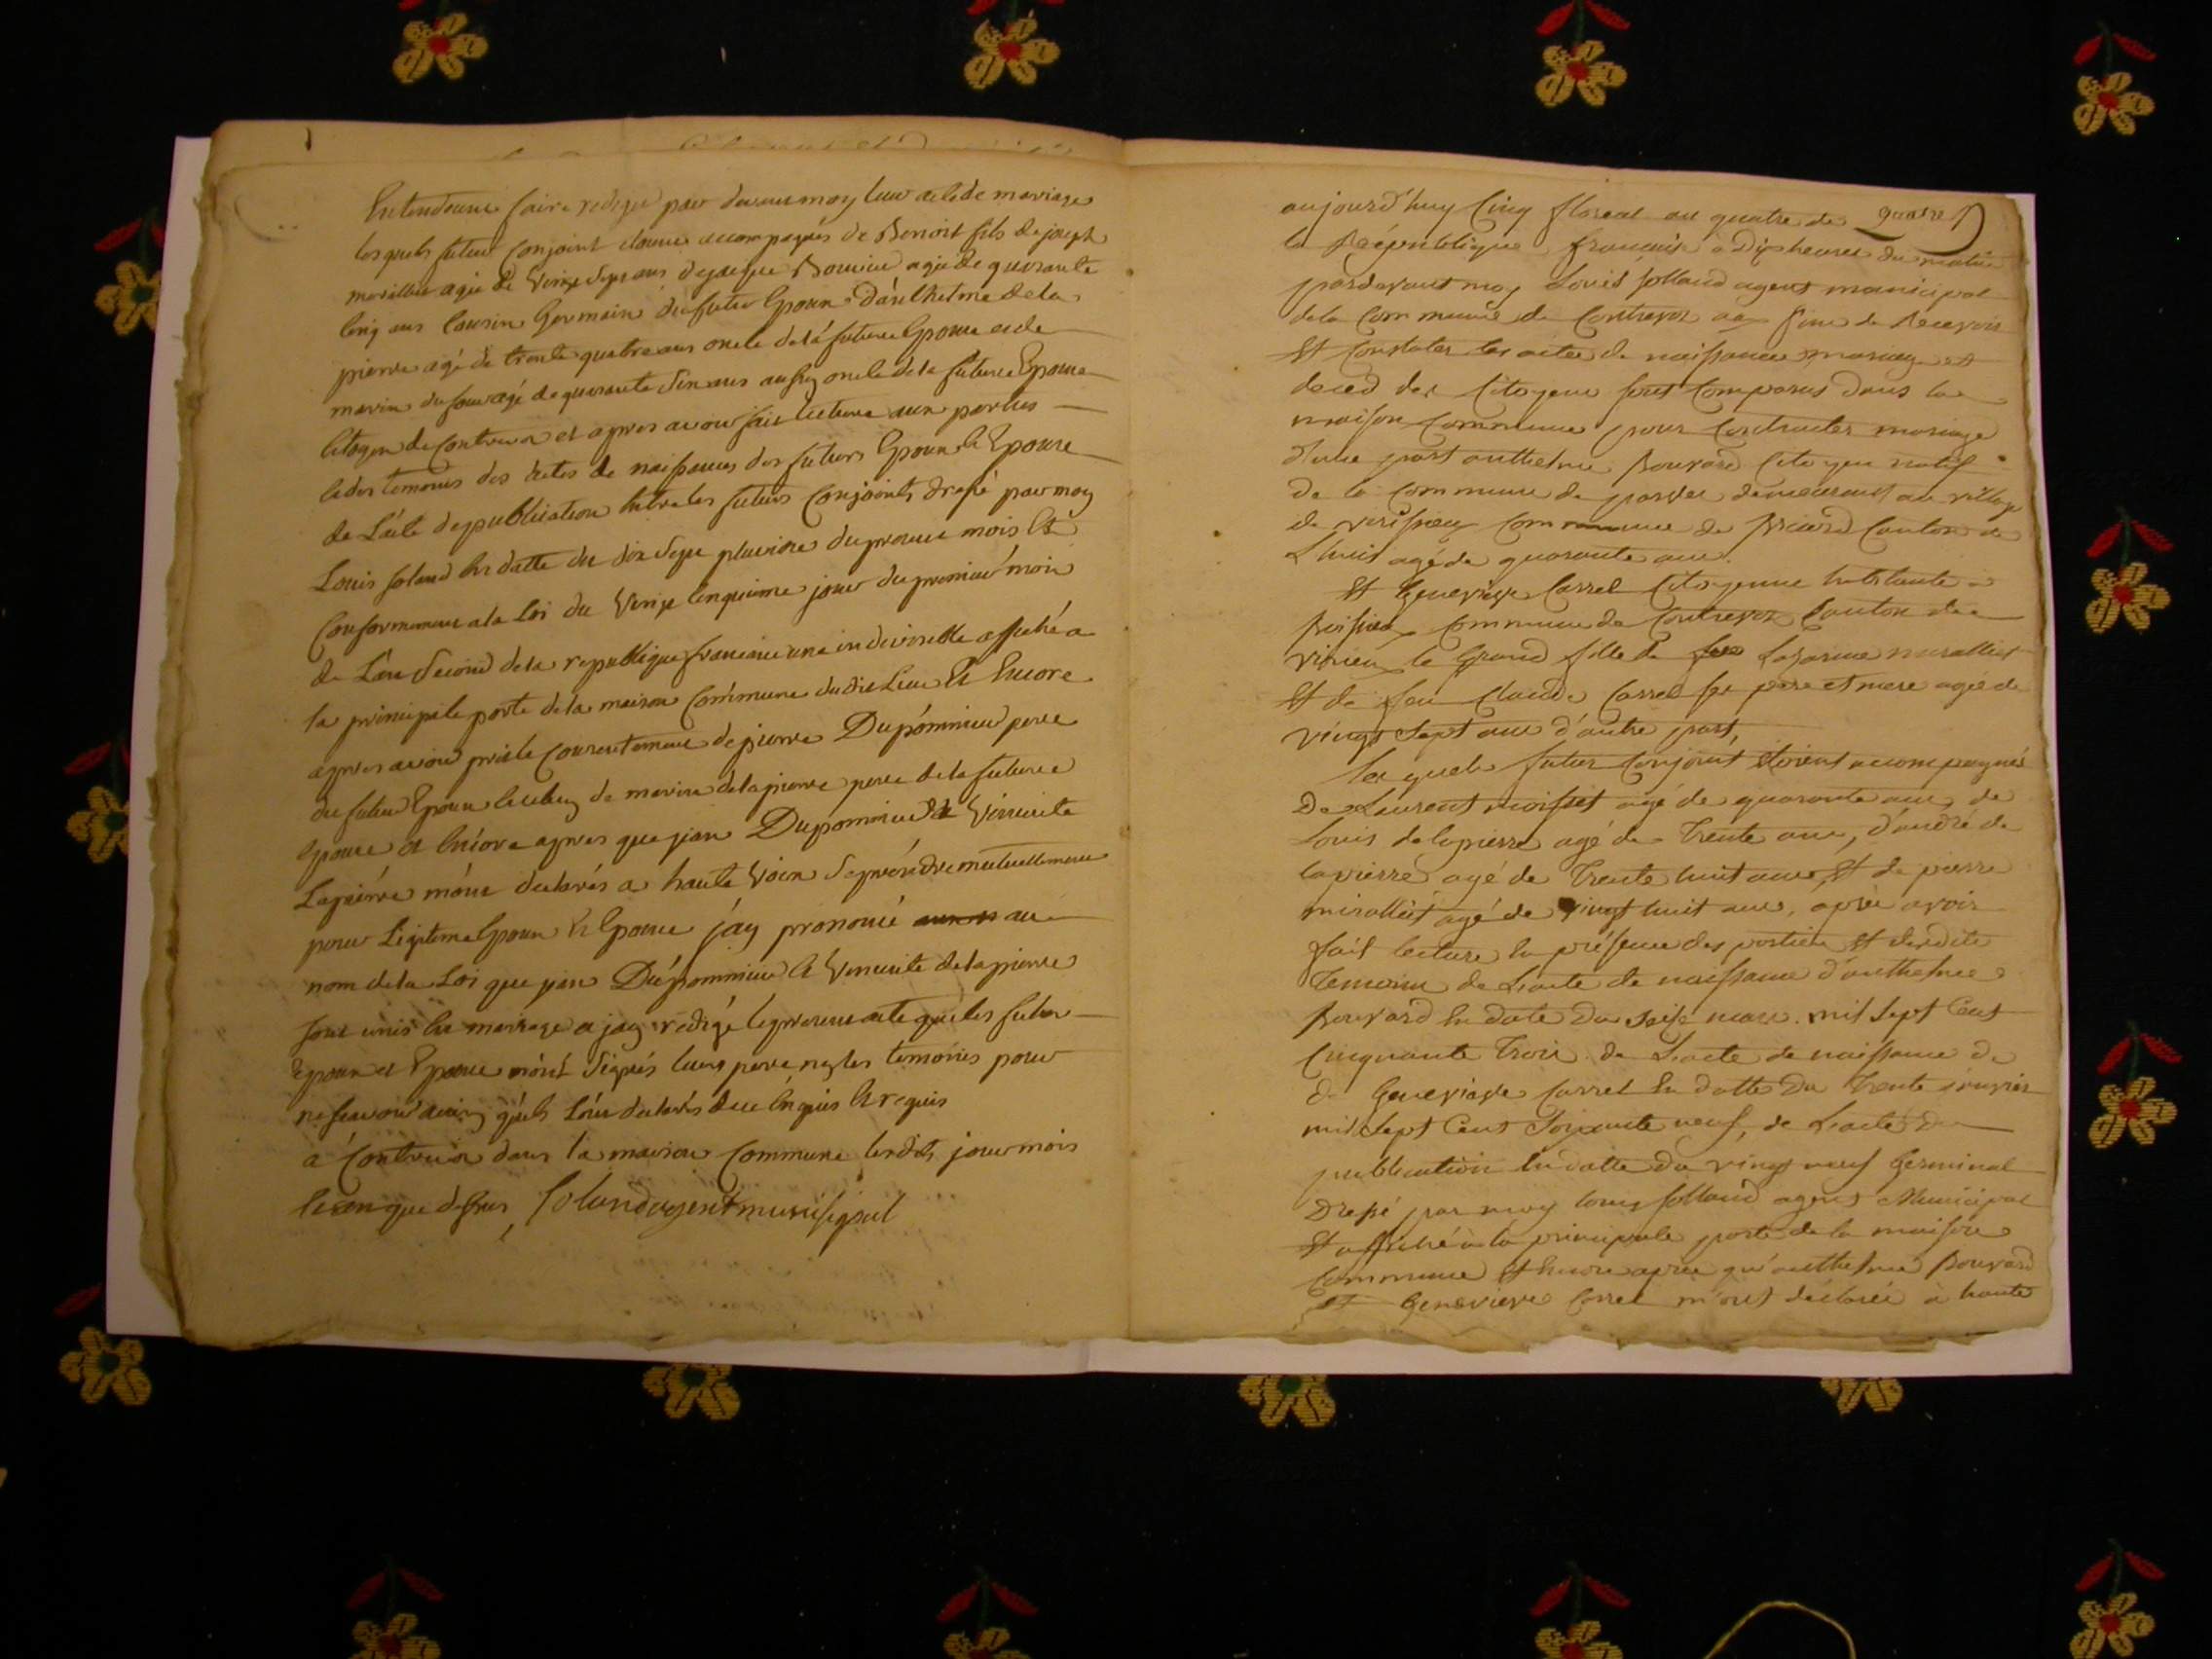 Entendant faire rediger par devant moy leur acte de mariage
lesquels futur conjoint etaient accompagnés de Benoit fils de joseph
agé de Vingt Sept ans de jaque agé de quarante
cinq ans cousin Germain du futur Epoux d'anthelme dela
pierre agé de trente quatre ans oncle de la future Epouse et de
marin agé de quarante ans aussy oncle de la future Epouse
Citoyen de Contrevoz et apres avoir fait lecture aux parties
des temoins des actes de naissances des futurs Epoux & Epouse
de L'acte de publication Entre les futurs conjoints dressé par moy
Louis soland En datte du dix Sept pluviose du present mois Et
Conformement a la Loi du Vingt Cinquieme jour du premier mois
de L'an Second de la republique francaise une indivisible affiché a
la principale porte de la maison Commune dudit Lieu Et Encore
apres avoir pris le Consentement de pierre Dupommieu pere
du futur Epoux de marin delapierre pere de la future
Epouse et Encore apres que jean Dupommieu et Vincente
Lapierre m'ont declarés a haute Voix Se prendre mutuellement
pour Legitime Epoux Et Epouse j'ay prononcé au
nom de la Loi que jean Dupommieu Et Vincente delapierre
Sont unis En mariage et jay redigé le present acte que les futur
Epoux et Epouse n'ont Signés leurs pere ny les temoins pour
ne scavoir ainsy qu'ils L'ont declarés de ce Enquis Et requis
à Contrevoz dans la maison Commune lesdits jour mois
et an que dessus, Soland agent munisipal
quatre
aujourd'huy Cinq floreal an quatre de
la République française a Dix heures du matin
pardevant moy Louis solland agent municipal
de la Commune de Contrevoz aux fins de Recevoir
Et Constater les actes de naissance mariage et
deced des Citoyens sont Comparus dans la
maison Commune pour Contracter mariage
d'une part anthelme Bouvard Citoyen natif
de la commune de parves demeurant au village
de commune de Briord Canton de
Lhuis agé de quarante ans.
Et Genevieve Carrel Citoyenne habitante a
Boissieu Commune de Contrevoz Canton de
Virieu le Grand fille de
Et de feu Claude Carrel ses pere et mere agée de
vingt Sept ans d'autre part,
Lesquels futur Conjoint étoient accompagnés
De Laurent moissit agé de quarante ans, de
Louis delapierre agé de Trente ans, d'andré de
lapierre agé de Trente huit ans, Et de pierre
agé de vingt huit ans, après avoir
fait lecture En présence des parties Et desdits
Temoins de L'acte de naissance d'anthelme
Bouvard En date du Seize mars mil Sept Cent
Cinquante Trois. de L'acte de naissance de
de Genevieve Carrel En datte du Trente janvier
mil Sept Cent Soixante neuf, de L'acte de
publication En datte du vingt neuf Germinal
Dressé par moy Louis solland agent Municipal
Et affiché à la principale porte de la maison
Commune Et Encore après qu'anthelme Bouvard
et Genevieve Carrel m'ont déclaré à haute